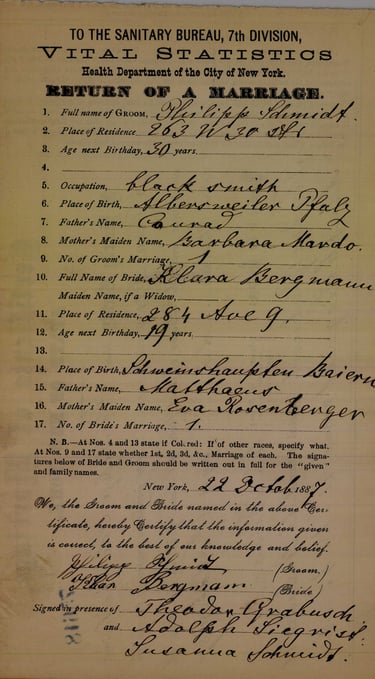 TO THE SANITARY BUREAU, 7th DIVISION,
VITAL STATISTICS
Health Department of the City of New York.
RETURN OF A MARRIAGE.
1. Full name of GROOM, Philipp Schmidt.
2. Place of Residence, 263 W 30 str
3. Age next Birthday, 30 years.
4.
5. Occupation, black smith
6. Place of Birth, Albersweiler Pfalz
7. Father's Name, Conrad
8. Mother's Maiden Name, Barbara Mardo.
9. No. of Groom's Marriage, 1
10. Full Name of Bride, Klara Bergmann
Maiden Name, if a Widow,
11. Place of Residence, 284 Ave 9.
12. Age next Birthday, 19 years.
13.
14. Place of Birth, Schweinshaupten Baiern
15. Father's Name, Matthaeus
16. Mother's Maiden Name, Eva Rosenberger
17. No. of Bride's Marriage, 1.
N. B.—At Nos. 4 and 13 state if Colored: If of other races, specify what.
At Nos. 9 and 17 state whether 1st, 2d, 3d, &c., Marriage of each. The signa-
tures below of Bride and Groom should be written out in full for the "given"
and family names.
New York, 22 Octob. 1887.
We, the Groom and Bride named in the above Cer-
tificate, hereby Certify that the information given
is correct, to the best of our knowledge and belief.
Philipp Schmidt (Groom.)
Bergmann (Bride)
Signed in presence of Theodor Grabusch
and Adolph Siegrist.
Susanna Schmidt.